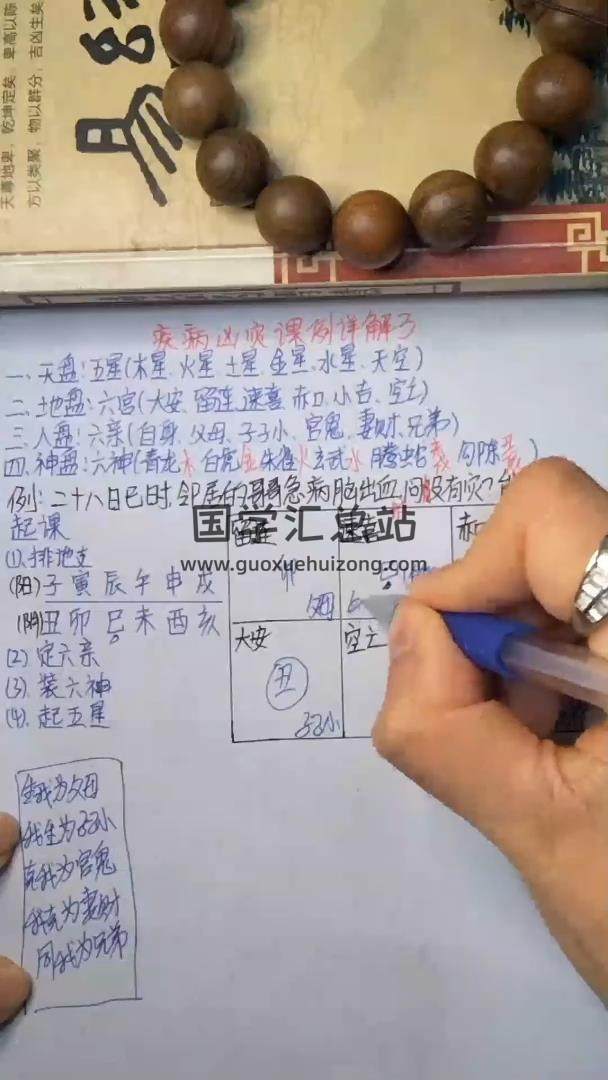 天尊地卑，乾坤定矣，卑高以陈
方以类聚，物以群分，吉凶生矣
易经
疾病凶灾课例详解3
一、天盘：五星(木星、火星、土星、金星、水星、天空)
二、地盘：六宫(大安、留连、速喜、赤口、小吉、空亡)
三、人盘：六亲(自身、父母、子孙、官鬼、妻财、兄弟)
四、神盘：六神(青龙木 白虎金 朱雀火 玄武水 腾蛇 勾陈)
例：二十八日巳时，邻居的哥哥急病脑出血，问没有灾？
起课
(1)、排地支
(阳)子 寅 辰 午 申 戌
(阴)丑 卯 巳 未 酉 亥
(2) 定六亲
(3)、装六神
(4)、起五星
留连
速喜
赤
卯
父母
大安
空亡
丑
子孙
生我为父母
我生为子孙
克我为官鬼
我克为妻财
同我为兄弟
国学汇总站
www.guoxuehuizong.com